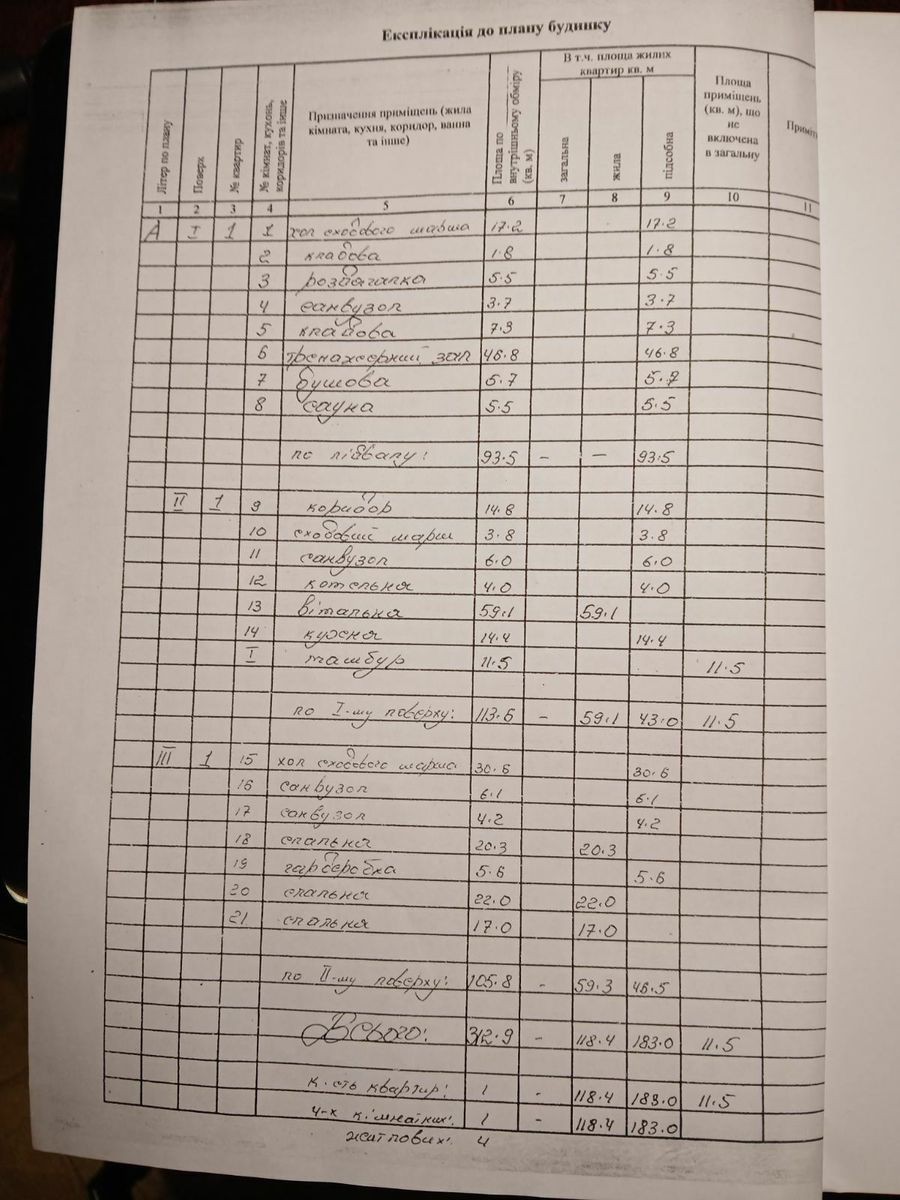 Експлікація до плану будинку
Літер по плану | Поверх | № квартир | № кімнат, кухонь, коридорів та інше | Призначення приміщень (жила кімната, кухня, коридор, ванна та інше) | Площа по внутрішньому обміру (кв. м) | В т.ч. площа жилих квартир кв. м | загальна | жила | підсобна | Площа приміщень (кв. м), що не включена в загальну
1 2 3 4 5 6 7 8 9 10 11
А I 1 1 хол сходового марша 17.2 17.2
2 кладова 1.8 1.8
3 роздягалка 5.5 5.5
4 санвузол 3.7 3.7
5 кладова 7.3 7.3
6 тренажерний зал 46.8 46.8
7 душова 5.7 5.7
8 сауна 5.5 5.5
по підвалу: 93.5 – – 93.5
II 1 9 коридор 14.8 14.8
10 сходовий марш 3.8 3.8
11 санвузол 6.0 6.0
12 котельня 4.0 4.0
13 вітальня 59.1 59.1
14 кухня 14.4 14.4
I тамбур 11.5 11.5
по I-му поверху: 113.6 – 59.1 43.0 11.5
III 1 15 хол сходового марша 30.6 30.6
16 санвузол 6.1 6.1
17 санвузол 4.2 4.2
18 спальня 20.3 20.3
19 гардеробка 5.6 5.6
20 спальня 22.0 22.0
21 спальня 17.0 17.0
по II-му поверху: 105.8 - 59.3 46.5
Всього: 312.9 - 118.4 183.0 11.5
к-сть квартир: 1 - 118.4 183.0 11.5
4-х кімнатних: 1 - 118.4 183.0
житлових: 4